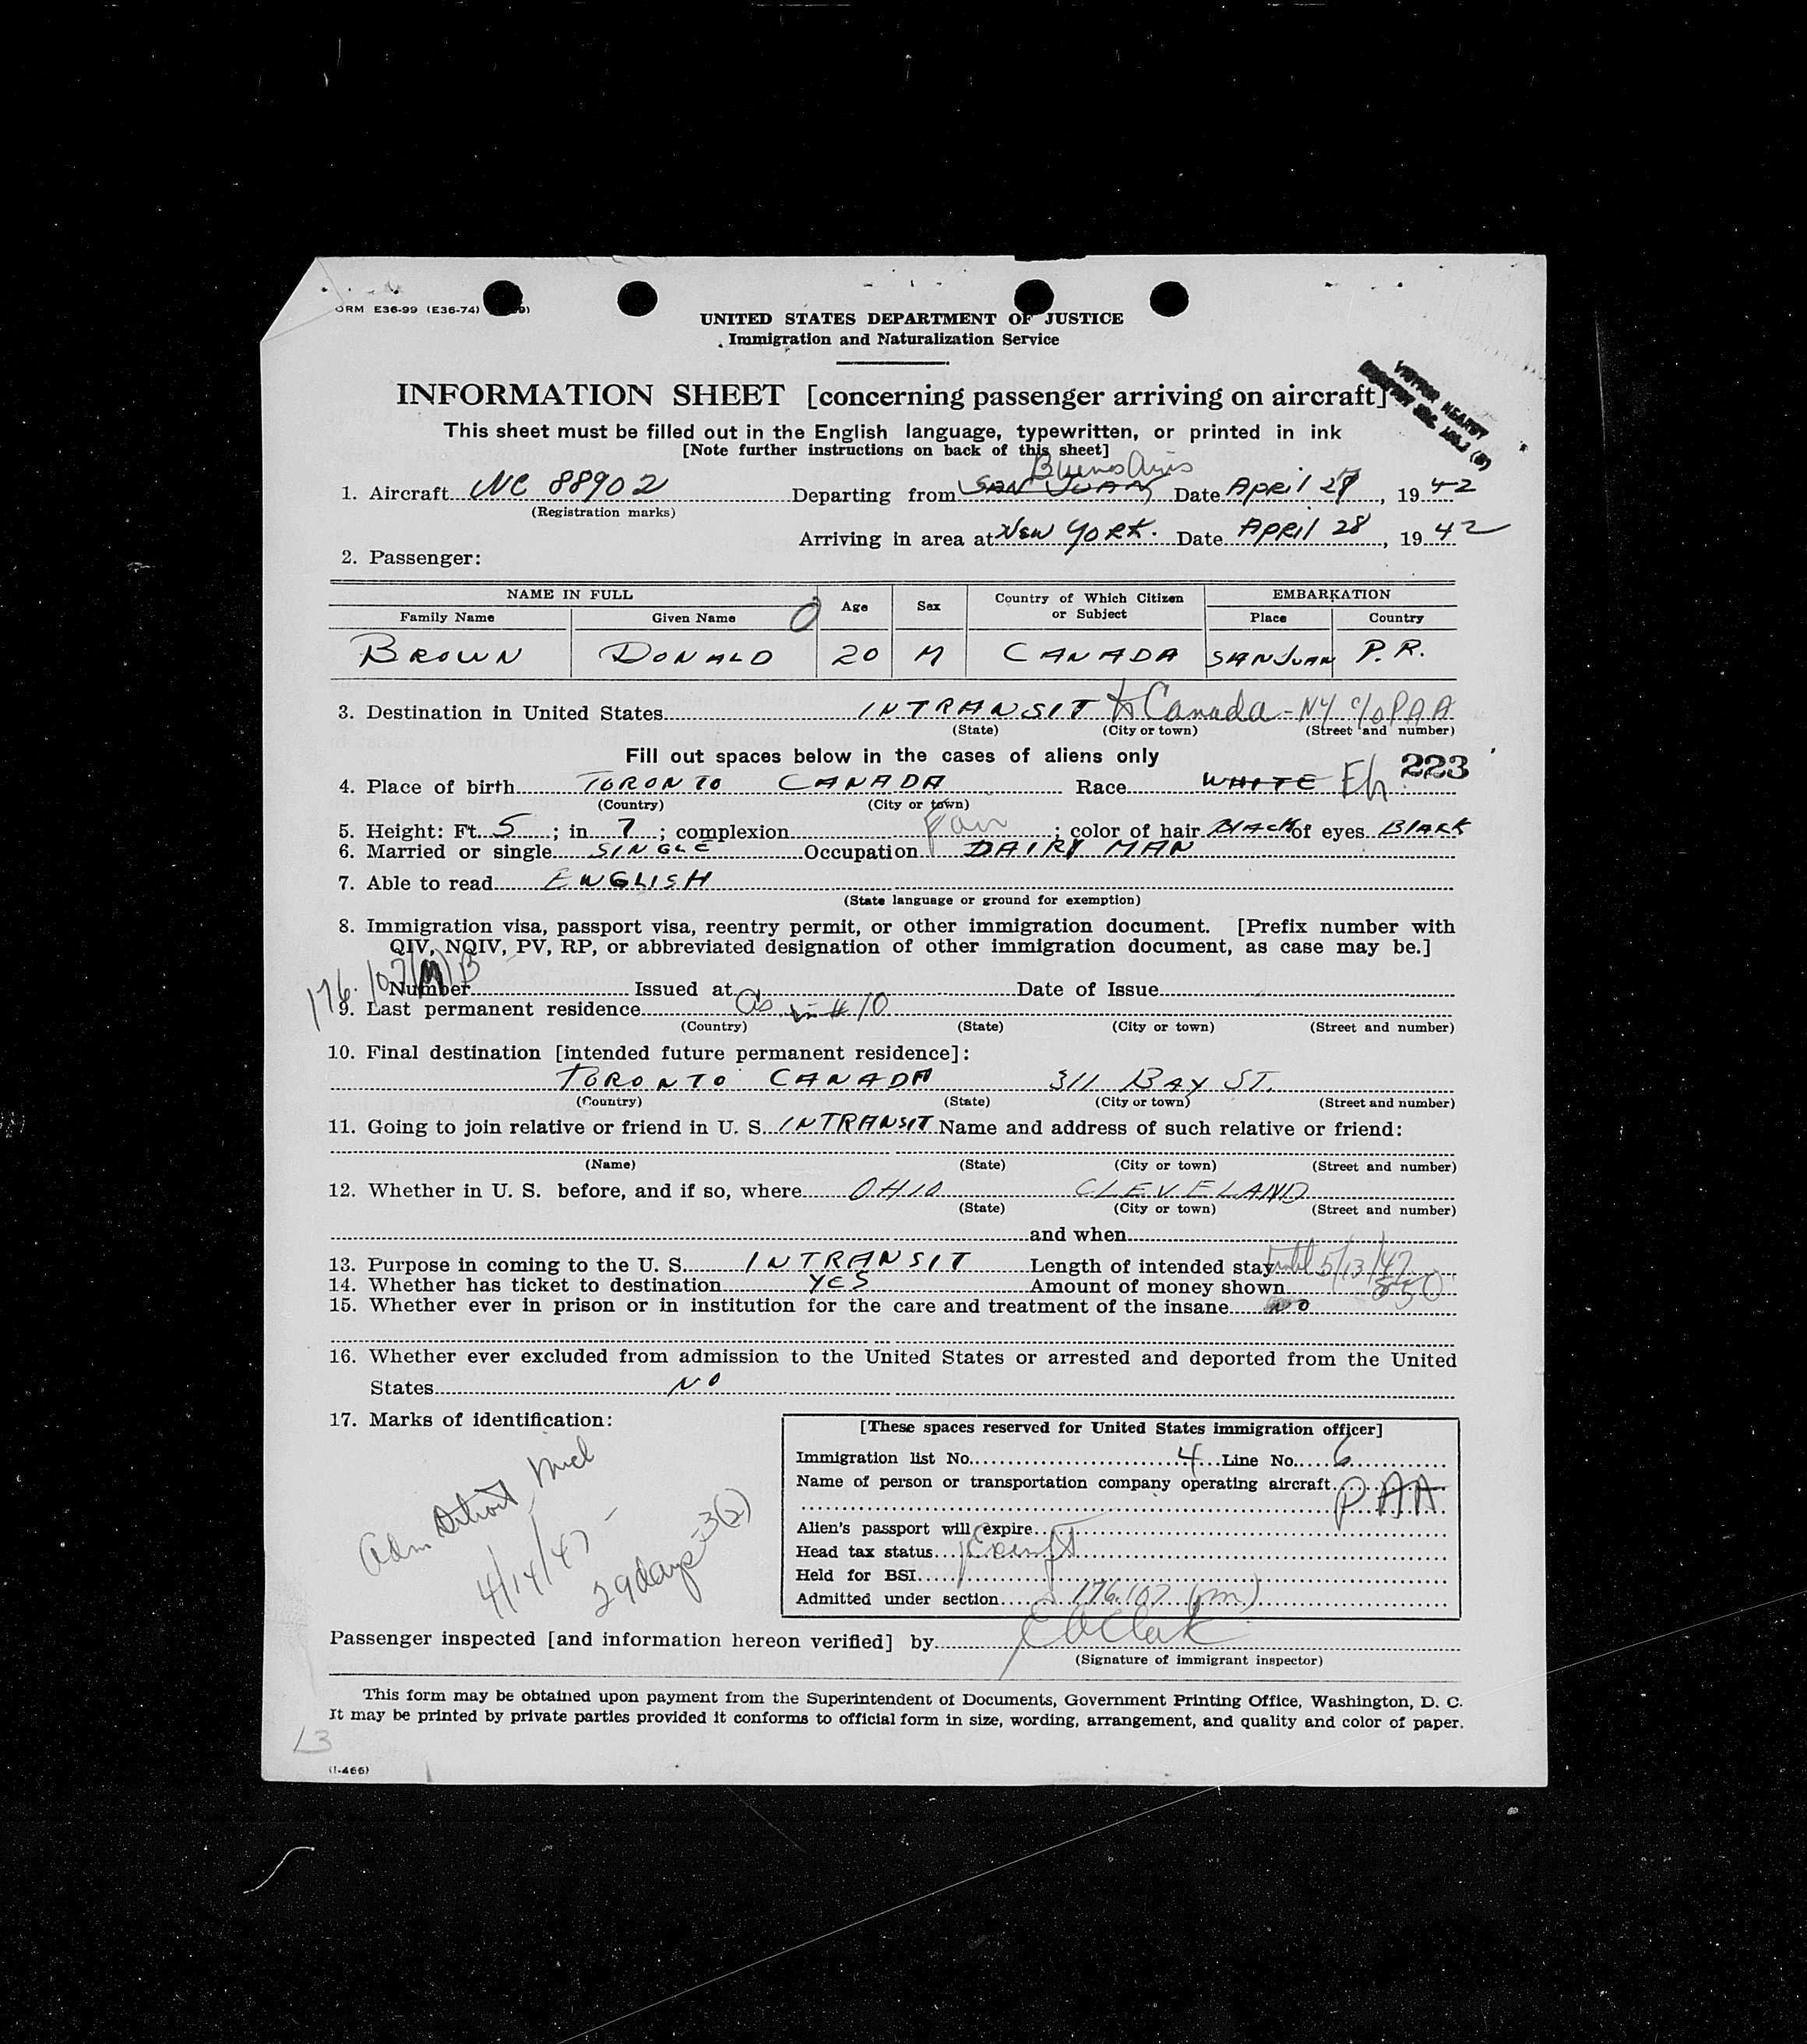 ORM E36-99 (E36-74)
UNITED STATES DEPARTMENT OF JUSTICE
Immigration and Naturalization Service
INFORMATION SHEET [concerning passenger arriving on aircraft]
This sheet must be filled out in the English language, typewritten, or printed in ink
[Note further instructions on back of this sheet]
Buenos Aires
1. Aircraft NC 88902 Departing from SAN JUAN Date April 27, 1942
(Registration marks)
Arriving in area at New York. Date April 28, 1942
2. Passenger:
NAME IN FULL Age Sex Country of Which Citizen or Subject EMBARKATION
Family Name Given Name Place Country
BROWN DONALD 20 M CANADA SAN JUAN P.R.
3. Destination in United States INTRANSIT to Canada - NY c/o PAA
(State) (City or town) (Street and number)
Fill out spaces below in the cases of aliens only
223
4. Place of birth TORONTO CANADA Race WHITE
(Country) (City or town)
5. Height: Ft. 5; in 7; complexion Fair; color of hair BLACK of eyes BLACK
6. Married or single SINGLE Occupation DAIRY MAN
7. Able to read ENGLISH
(State language or ground for exemption)
8. Immigration visa, passport visa, reentry permit, or other immigration document. [Prefix number with
QIV, NQIV, PV, RP, or abbreviated designation of other immigration document, as case may be.]
176.107(M)B
Number Issued at Date of Issue
9. Last permanent residence as in # 10
(Country) (State) (City or town) (Street and number)
10. Final destination [intended future permanent residence]:
TORONTO CANADA 311 BAY ST.
(Country) (State) (City or town) (Street and number)
11. Going to join relative or friend in U. S. INTRANSIT Name and address of such relative or friend:
(Name) (State) (City or town) (Street and number)
12. Whether in U. S. before, and if so, where OHIO CLEVELAND
(State) (City or town) (Street and number)
and when
13. Purpose in coming to the U. S. INTRANSIT Length of intended stay until 5/13/47
14. Whether has ticket to destination YES Amount of money shown 850
15. Whether ever in prison or in institution for the care and treatment of the insane NO
16. Whether ever excluded from admission to the United States or arrested and deported from the United
States NO
17. Marks of identification:
Adm Detroit Mich
4/14/47 -
29 days - 3(2)
[These spaces reserved for United States immigration officer]
Immigration list No. 4 Line No. 6
Name of person or transportation company operating aircraft PAA
Alien's passport will expire
Head tax status Exempt
Held for BSI
Admitted under section 176.107 (m)
Passenger inspected [and information hereon verified] by
(Signature of immigrant inspector)
This form may be obtained upon payment from the Superintendent of Documents, Government Printing Office, Washington, D. C.
It may be printed by private parties provided it conforms to official form in size, wording, arrangement, and quality and color of paper.
13
(I-466)